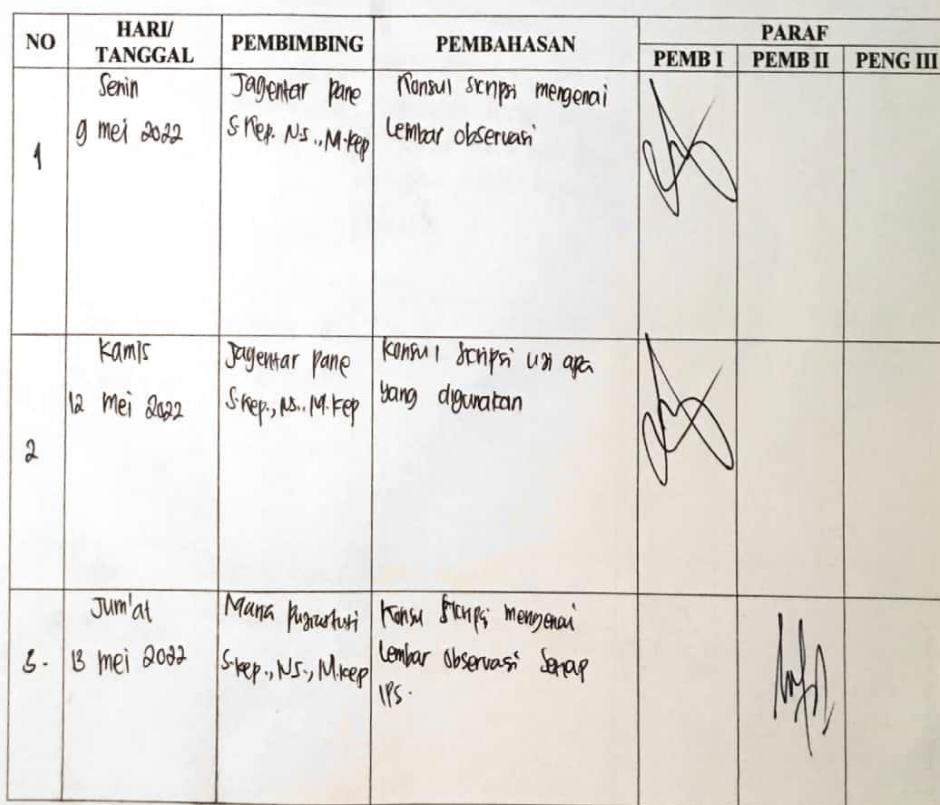 NO HARI/ TANGGAL PEMBIMBING PEMBAHASAN PARAF
PEMB I PEMB II PENG III
1
Senin
9 mei 2022
Jagentar Pane
S.Kep. Ns., M.Kep
Konsul skripsi mengenai
Lembar observasi
2
Kamis
12 mei 2022
Jagentar Pane
S.Kep., Ns., M.Kep
Konsul skripsi uji apa
yang digunakan
3.
Jum'at
13 mei 2022
S.Kep., Ns., M.Kep
Konsul skripsi mengenai
Lembar observasi Setiap
IPS.